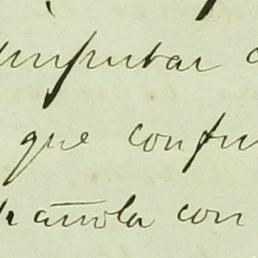 imputar
que confu
pañola con